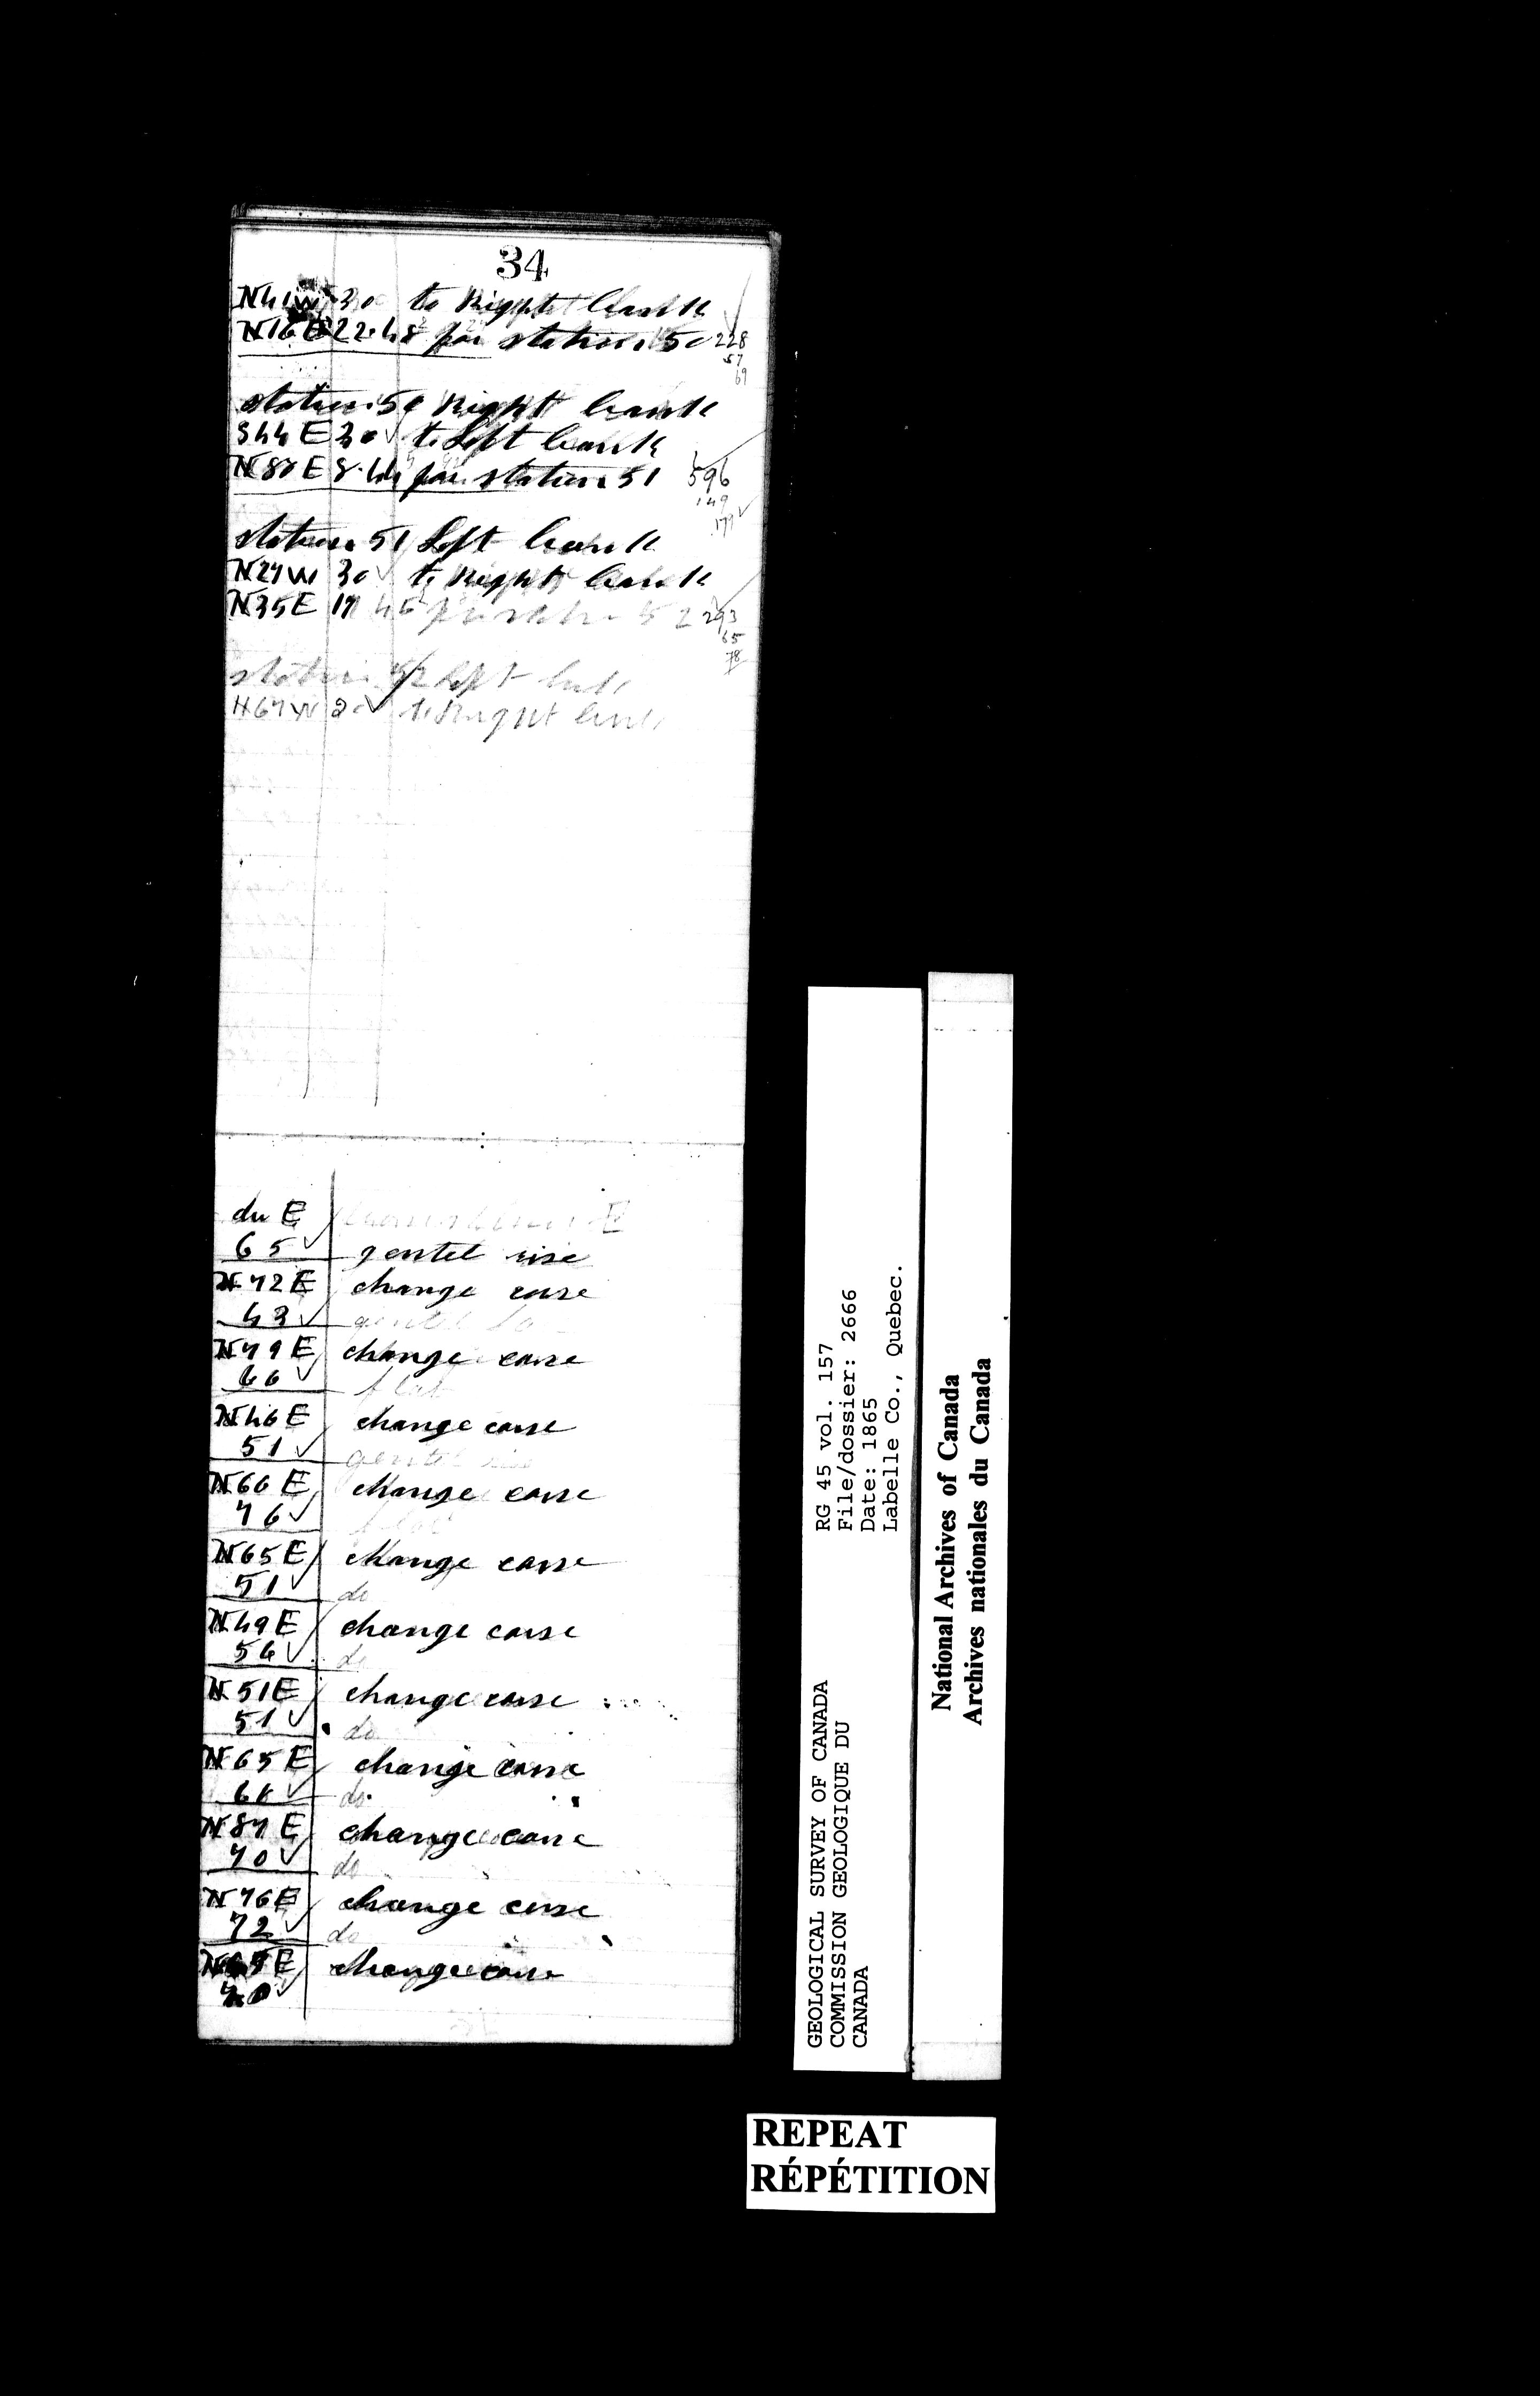 34
N41W 30 to Right bank
N16E 22.48 for station 50 228
57
69
station 50 Right bank
S44E 30 to Left bank
N87E 8.44 for station 51 596
149
179
station 51 Left bank
N27W 30 to Right bank
N35E 17 45 for station 52 293
65
78
station 52 Left bank
N67W 20 to Right bank
du E
65 gentel rise
N72E change corse
43 gentel
N79E change corse
66 flat
N46E change corse
51 gentel rise
N66E change corse
76 flat
N65E change corse
51 do
N49E change corse
54 do
N51E change corse
51 do
N65E change corse
do
N87E change corse
70 do
N76E change corse
72 do
change corse
GEOLOGICAL SURVEY OF CANADA
COMMISSION GEOLOGIQUE DU
CANADA
RG 45 vol. 157
File/dossier: 2666
Date: 1865
Labelle Co., Quebec.
National Archives of Canada
Archives nationales du Canada
REPEAT
RÉPÉTITION